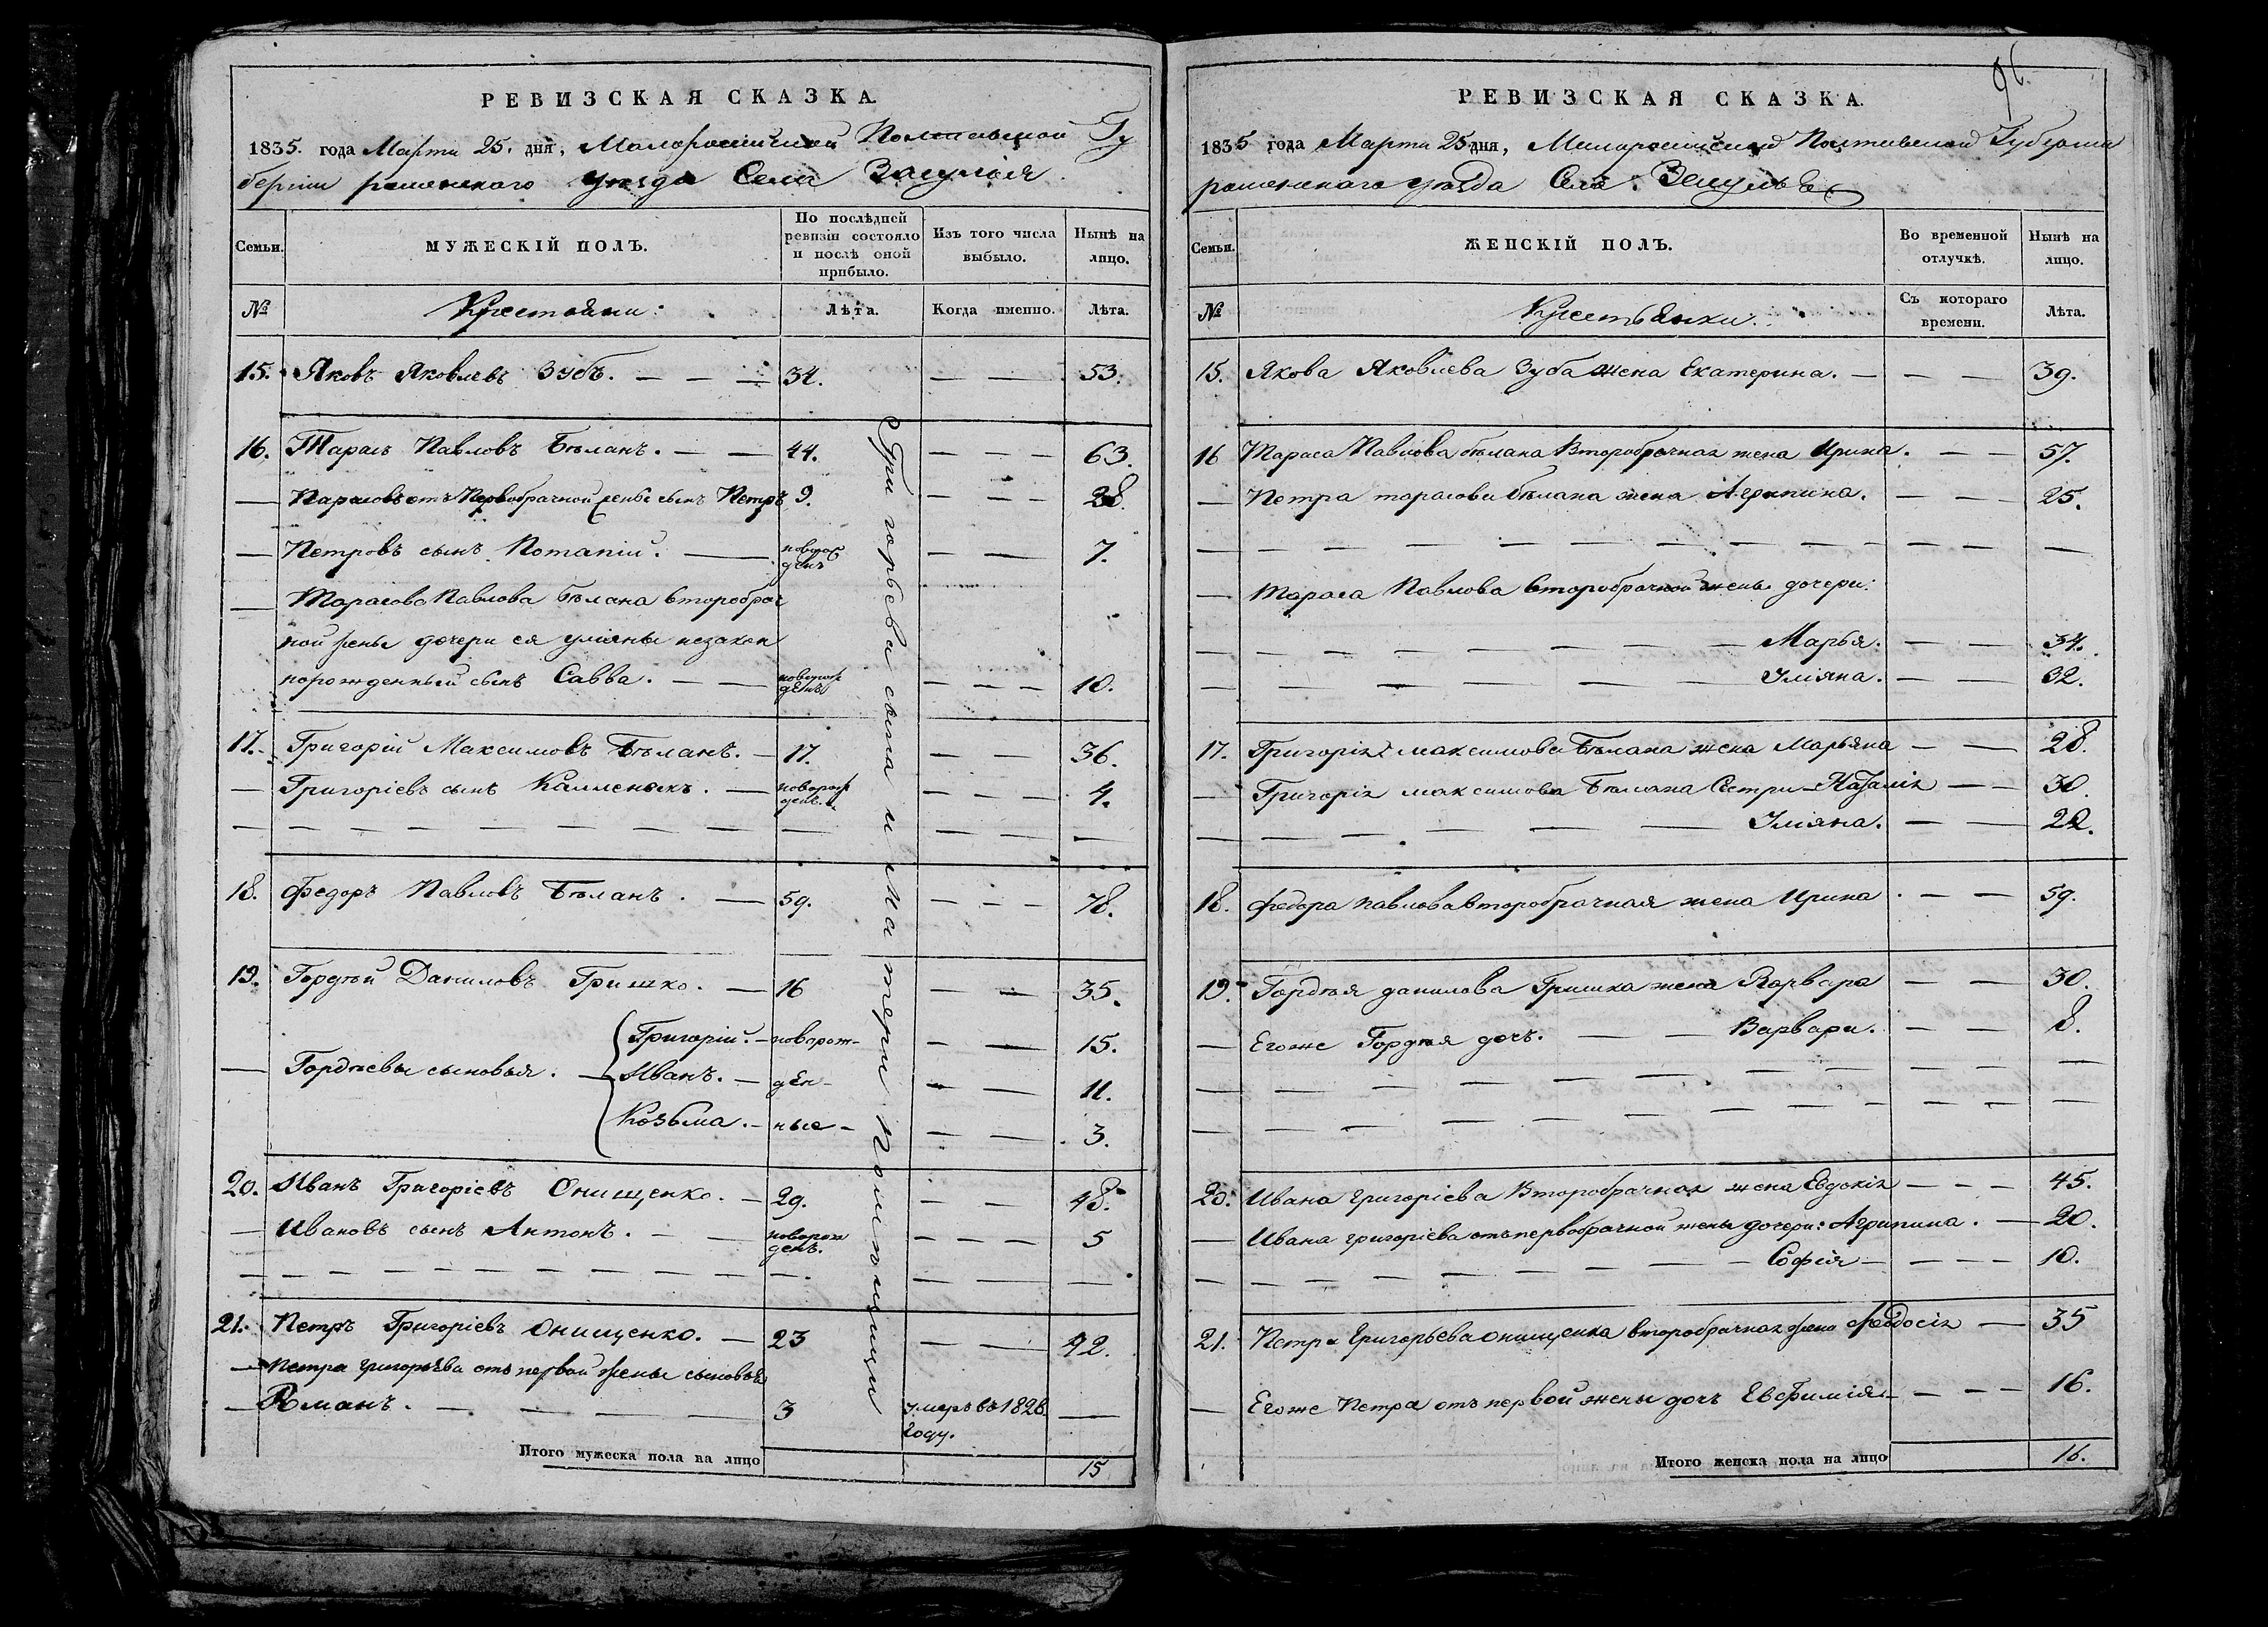 РЕВИЗСКАЯ СКАЗКА.
1835. года Марта 25. дня, Малороссійской Полтавской Гу
берніи роменского уезда Села Засулья
Семьи.
МУЖЕСКІЙ ПОЛЪ.
По послѣдней ревизіи состояло и послѣ оной прибыло.
Изъ того числа выбыло.
Нынѣ на лицо.
№
Крестьяни:
Лѣта.
Когда именно.
Лѣта.
15. Яковъ Яковлевъ Зубъ. 34. 53.
16. Тарасъ Павловъ Бѣланъ. 44. 63.
Тарасовъ отъ Первобрачной жены сынъ Петръ 9. 28.
Петровъ сынъ Потапій. новорож денъ 7.
Тарасова Павлова Бѣлана второбрач
ной жены дочери ея уліяны незакон
норожденный сынъ Савва. новорож денъ 10.
17. Григорій Максимовъ Бѣланъ. 17. 36.
Григоріевъ сынъ новорож денъ. 4.
18. Федоръ Павловъ Бѣланъ. 59. 78.
19. Гордѣй Даниловъ Гришко. 16 35.
Григорій. новорож- 15.
Гордѣевы сыновья. Иванъ. ден- 11.
Козьма. ные- 3.
20. Иванъ Григоріевъ Онищенко. 29. 48.
Ивановъ сынъ Антонъ. новорож денъ. 5
21. Петръ Григоріевъ Онищенко. 23 42.
Петра григорьева отъ первой жены сыновья
Романъ. 3 умеръ въ 1828. году.
Итого мужеска пола на лицо 15
Григорьева сына и Матери
96.
РЕВИЗСКАЯ СКАЗКА.
1835 года Марта 25 дня, Малороссійской Полтавской Губерніи
роменскаго уѣзда Села Засулья
Семьи.
ЖЕНСКІЙ ПОЛЪ.
Во временной отлучкѣ.
Нынѣ на лицо.
№
Крестьянки.
Съ котораго времени.
Лѣта.
15. Якова Яковлева Зуба жена Екатерина. 39.
16 Тараса Павлова бѣлана Второбрачная жена Ирина. 57.
Петра тарасова бѣлана жена Агрипина. 25.
Тараса Павлова второбрачной жены дочери:
Марья. 34.
Уліяна. 32.
17. Григорія максимова Бѣлана жена Марьяна 28.
Григорія максимова Бѣлана Сестри Наталія 30.
Уліяна. 22.
18. федора павлова второбрачная жена Ирина 59.
19. Гордѣя данилова Гришка жена Варвара 30.
Егоже Гордѣя дочь. Варвара. 8.
20. Ивана григоріева Второбрачная жена Евдокія 45.
Ивана григоріева отъ первобрачной жены дочери: Агрипина. 20.
Софія 10.
21. Петра Григорьева онищенка второбрачная жена Феодосія 35
Егоже Петра отъ первой жены дочь Евфимія 16.
Итого женска пола на лицо 16.